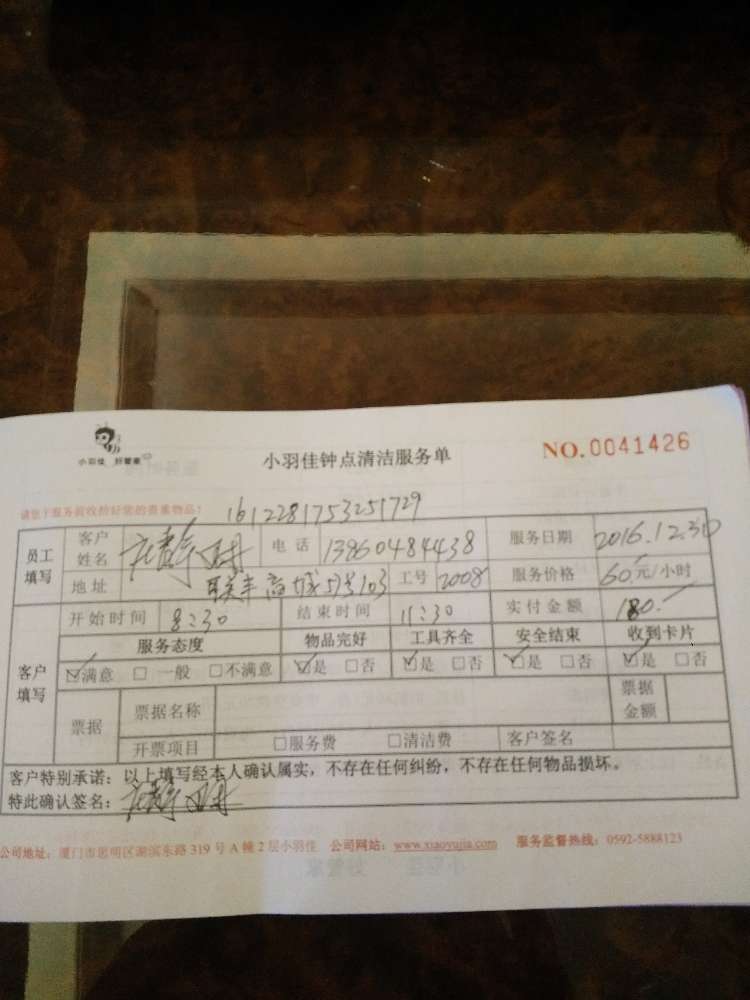 小羽佳 好管家
小羽佳钟点清洁服务单
NO.0041426
请您于服务前收拾好您的贵重物品!
1612281753251729
员工填写 客户姓名 电话 13960484438 服务日期 2016.12.30
地址 联丰商城 103 工号 2008 服务价格 60元/小时
开始时间 8:30 结束时间 11:30 实付金额 180.-
客户填写 服务态度 物品完好 工具齐全 安全结束 收到卡片
☑满意 □一般 □不满意 ☑是 □否 ☑是 □否 ☑是 □否 ☑是 □否
票据 票据名称 票据金额
开票项目 □服务费 □清洁费 客户签名
客户特别承诺:以上填写经本人确认属实,不存在任何纠纷,不存在任何物品损坏。
特此确认签名:
公司地址:厦门市思明区湖滨东路319号A幢2层小羽佳 公司网站:www.xiaoyujia.com 服务监督热线:0592-5888123